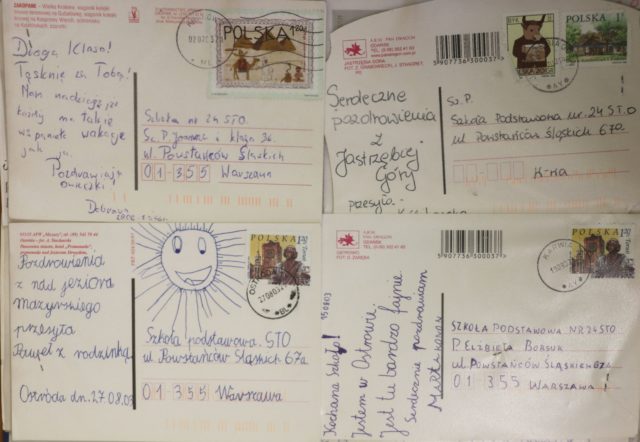 ZAKOPANE
Droga Klaso!
Tęsknię za Tobą!
Mam nadzieję, że
każdy ma takie
wspaniałe wakacje
jak ja.
Pozdrawiają
owieczki!
POLSKA
Szkoła nr 24 STO
Sz. P. Joanna i klasa
ul. Powstańców Śląskich
01-355 Warszawa
GDAŃSK
JASTRZĘBIA GÓRA
5907736300037
Serdeczne
pozdrowienia
z
Jastrzębiej
Góry
przesyła
POLSKA
POLSKA
Sz. P.
Szkoła Podstawowa nr 24 STO
ul. Powstańców Śląskich 67a
Pozdrowienia
z nad jeziora
Mazurskiego
przesyła
Paweł z rodzinką
Ostróda dn. 27.08.03
POLSKA 1,20
27.08.03
Szkoła podstawowa STO
ul. Powstańców Śląskich 67a
01-355 Warszawa
GDAŃSK
OSTROWO
5907736300037
Kochana Szkoło!
Jestem w Ostrowie.
Jest tu bardzo fajnie.
Serdecznie pozdrawiam
POLSKA 1,20
SZKOŁA PODSTAWOWA NR 24 STO
P. ELŻBIETA BORSUK
UL. POWSTAŃCÓW ŚLĄSKICH 67a
01 355 WARSZAWA